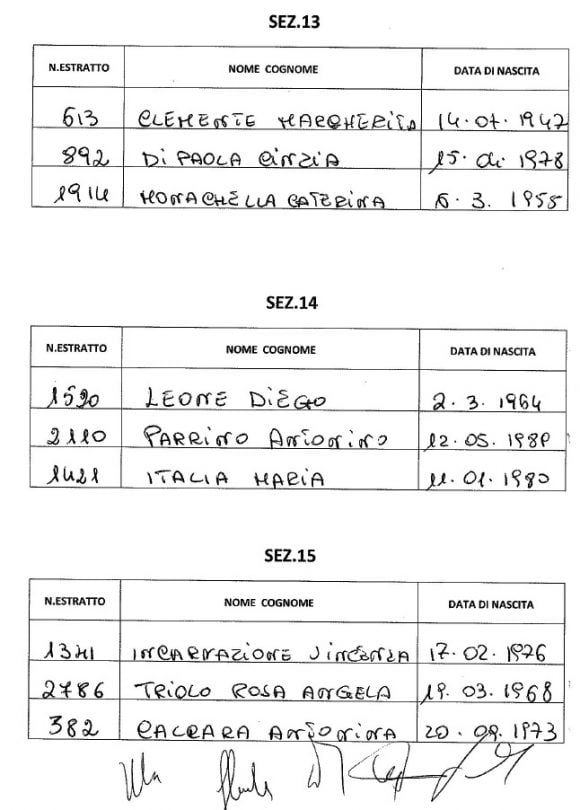 SEZ.13
N.ESTRATTO NOME COGNOME DATA DI NASCITA
613 CLEMENTE MARGHERITA 14.07.1947
892 DI PAOLA CINZIA 15. 1978
1914 MONACHELLA CATERINA 6.3.1955
SEZ.14
N.ESTRATTO NOME COGNOME DATA DI NASCITA
1590 LEONE DIEGO 2.3.1964
2110 PARRINO ANTONINO 12.05.1980
1421 ITALIA MARIA 11.01.1980
SEZ.15
N.ESTRATTO NOME COGNOME DATA DI NASCITA
1341 INCARNAZIONE VINCENZA 17.02.1976
2786 TRIOLO ROSA ANGELA 19.03.1968
382 CALCARA ANTONINA 20.09.1973